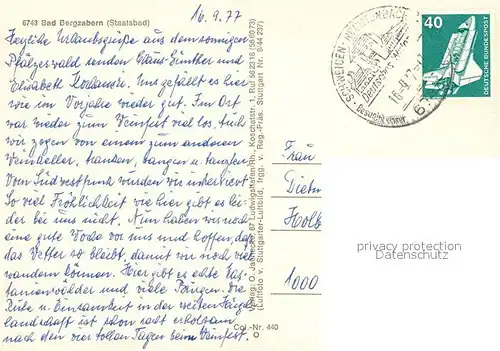 16.9.77
6743 Bad Bergzabern (Staatsbad)
Herzliche Urlaubsgrüße aus dem sonnigen
Pfälzerwald senden Claus-Günther und
Elisabeth. Uns gefällt es hier
wie im Vorjahr wieder gut. Im Ort
war wieder zum Weinfest viel los, auch
wir zogen von einem zum anderen
Weinkeller, tranken, sangen u. tanzten.
Vom Südwestfunk wurden wir interviewt.
So viel Fröhlichkeit wie hier gibt es lei-
der bei uns nicht. Nun haben wir noch
eine gute Woche vor uns und hoffen, daß
das Wetter so bleibt, damit wir noch viel
wandern können. Hier gibt es echte Kas-
tanienwälder und viele Burgen. Die
Ruhe u. Einsamkeit in der weiten
landschaft ist schon recht erholsam
nach den vier tollen Tagen beim Weinfest.
Col.-Nr. 440
O
Verlag: O. Jaenicke, 67 Ludwigshafen/Rh., Koschatstr. 1
(Luftfoto v. Stuttgarter-Luftbild, frgg. v. Reg.-Präs. Stuttgart Nr. 9/44 237)
SCHWEIGEN-RECHTENBACH
Deutsches Weintor
Besucht
16.-9.77
40
DEUTSCHE BUNDESPOST
Frau
1000
privacy protection
Datenschutz